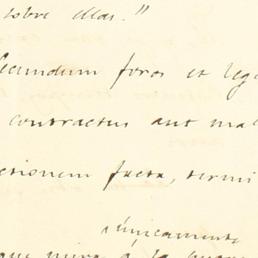 sobre ellas."
secundum foros et leg
contractus aut ma
ctionem facta, termi
únicamente
que mira á la